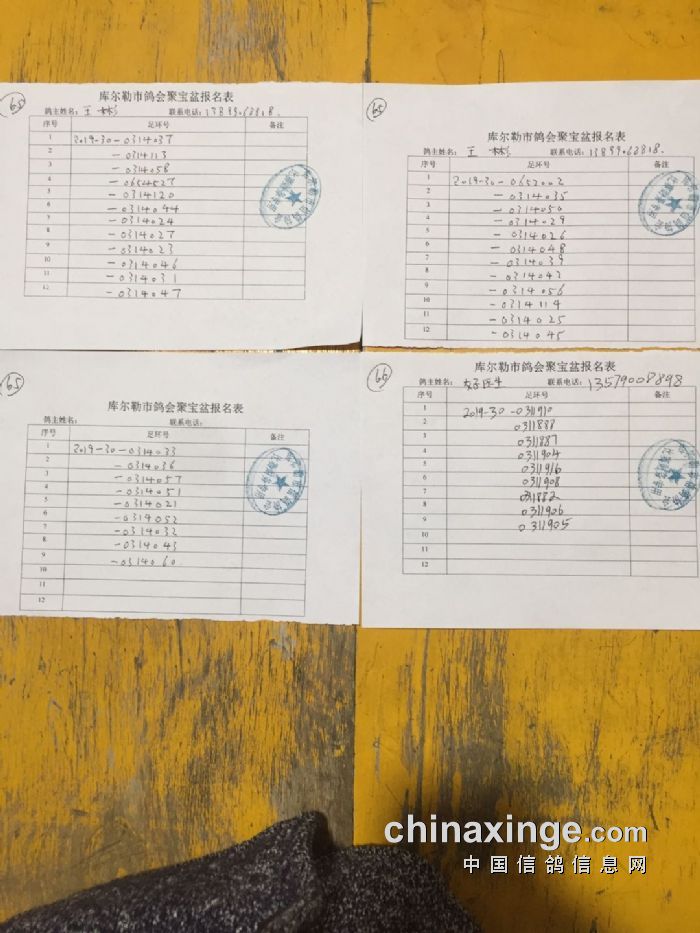 65
库尔勒市鸽会聚宝盆报名表
鸽主姓名: 王 彬 联系电话: 13899062818.
序号 足环号 备注
1 2019-30-0314037
2 -0314113
3 -0314058
4 -0652527
5 -0314120
6 -0314044
7 -0314024
8 -0314027
9 -0314023
10 -0314046
11 -0314031
12 -0314047
65
库尔勒市鸽会聚宝盆报名表
鸽主姓名: 王 彬 联系电话: 13899062818.
序号 足环号 备注
1 2019-30-0652002
2 -0314035
3 -0314050
4 -0314029
5 -0314026
6 -0314048
7 -0314039
8 -0314042
9 -0314056
10 -0314114
11 -0314025
12 -0314045
65
库尔勒市鸽会聚宝盆报名表
鸽主姓名: 联系电话:
序号 足环号 备注
1 2019-30-0314033
2 -0314036
3 -0314057
4 -0314051
5 -0314021
6 -0314052
7 -0314032
8 -0314043
9 -0314060
10
11
12
66
库尔勒市鸽会聚宝盆报名表
鸽主姓名: 联系电话: 13579008898
序号 足环号 备注
1 2019-30-0311910
2 0311888
3 0311887
4 0311904
5 0311916
6 0311908
7 0311882
8 0311906
9 0311905
10
11
12
chinaxinge.com
中国信鸽信息网